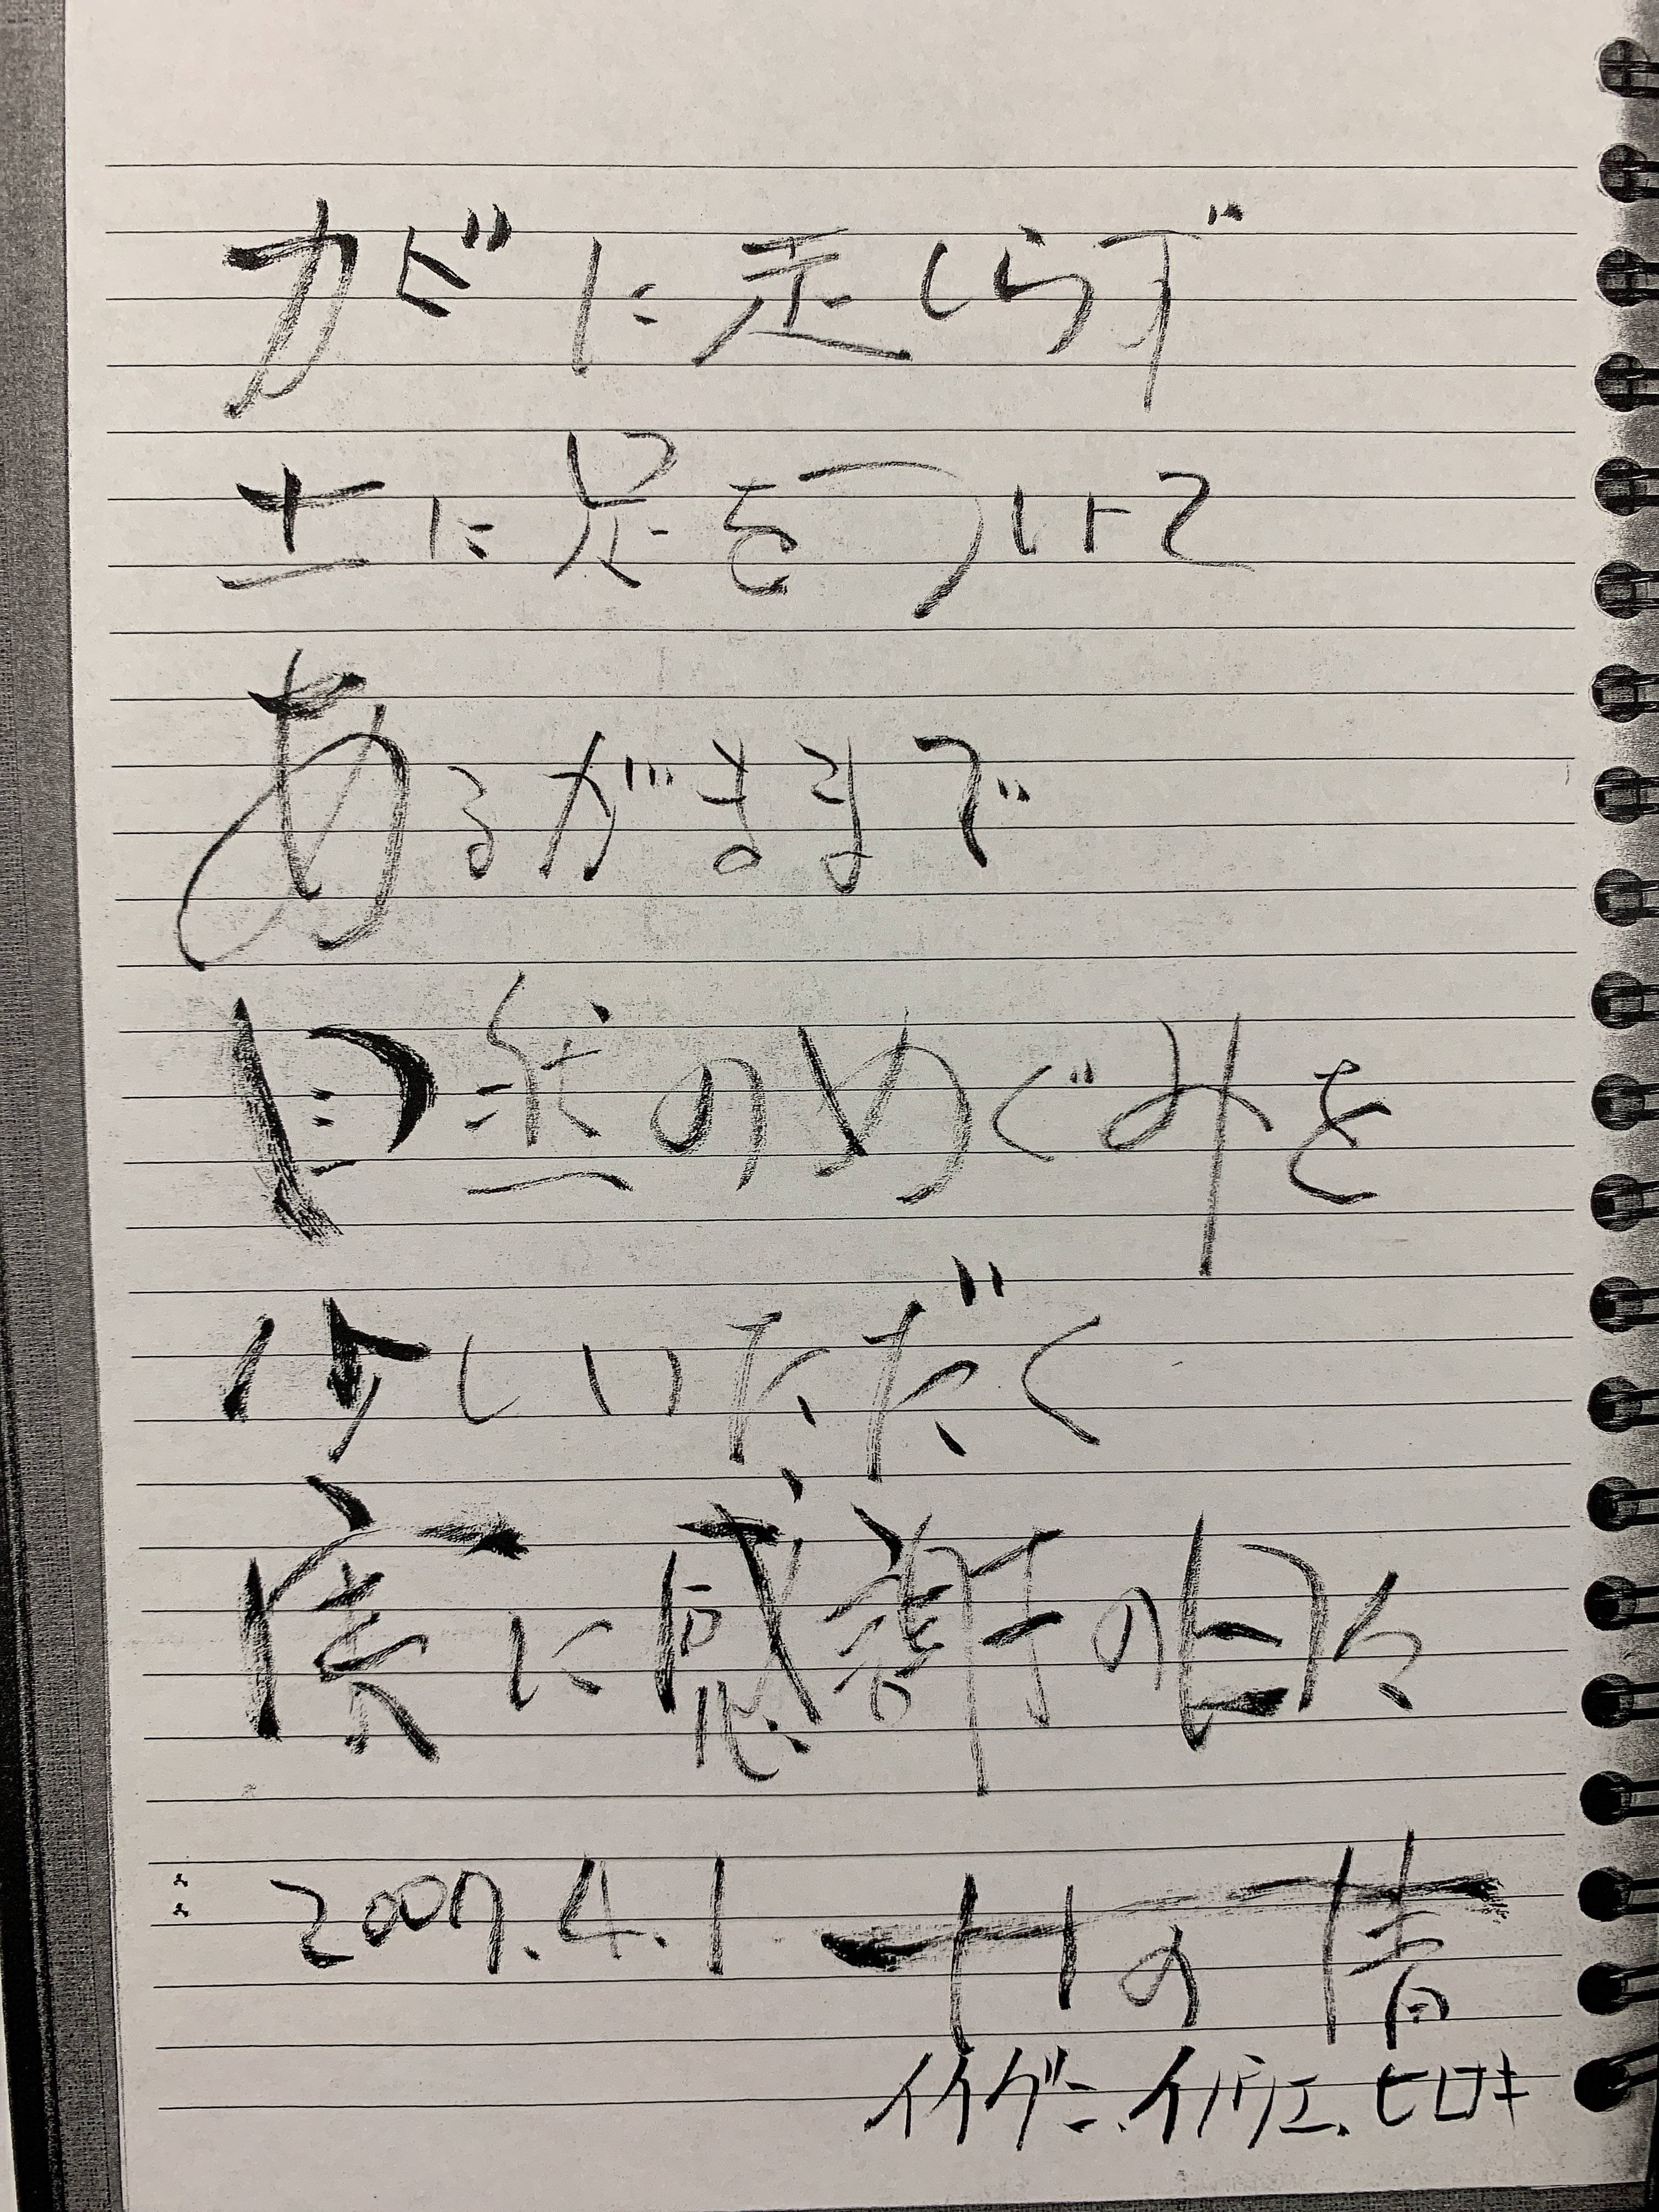 カビに走しらず
土に足をついて
あるがままで
自然のめぐみを
少しいただく
実に感謝の日々
2007.4.1 サの情
イイグニ.イノウエ.ヒロキ